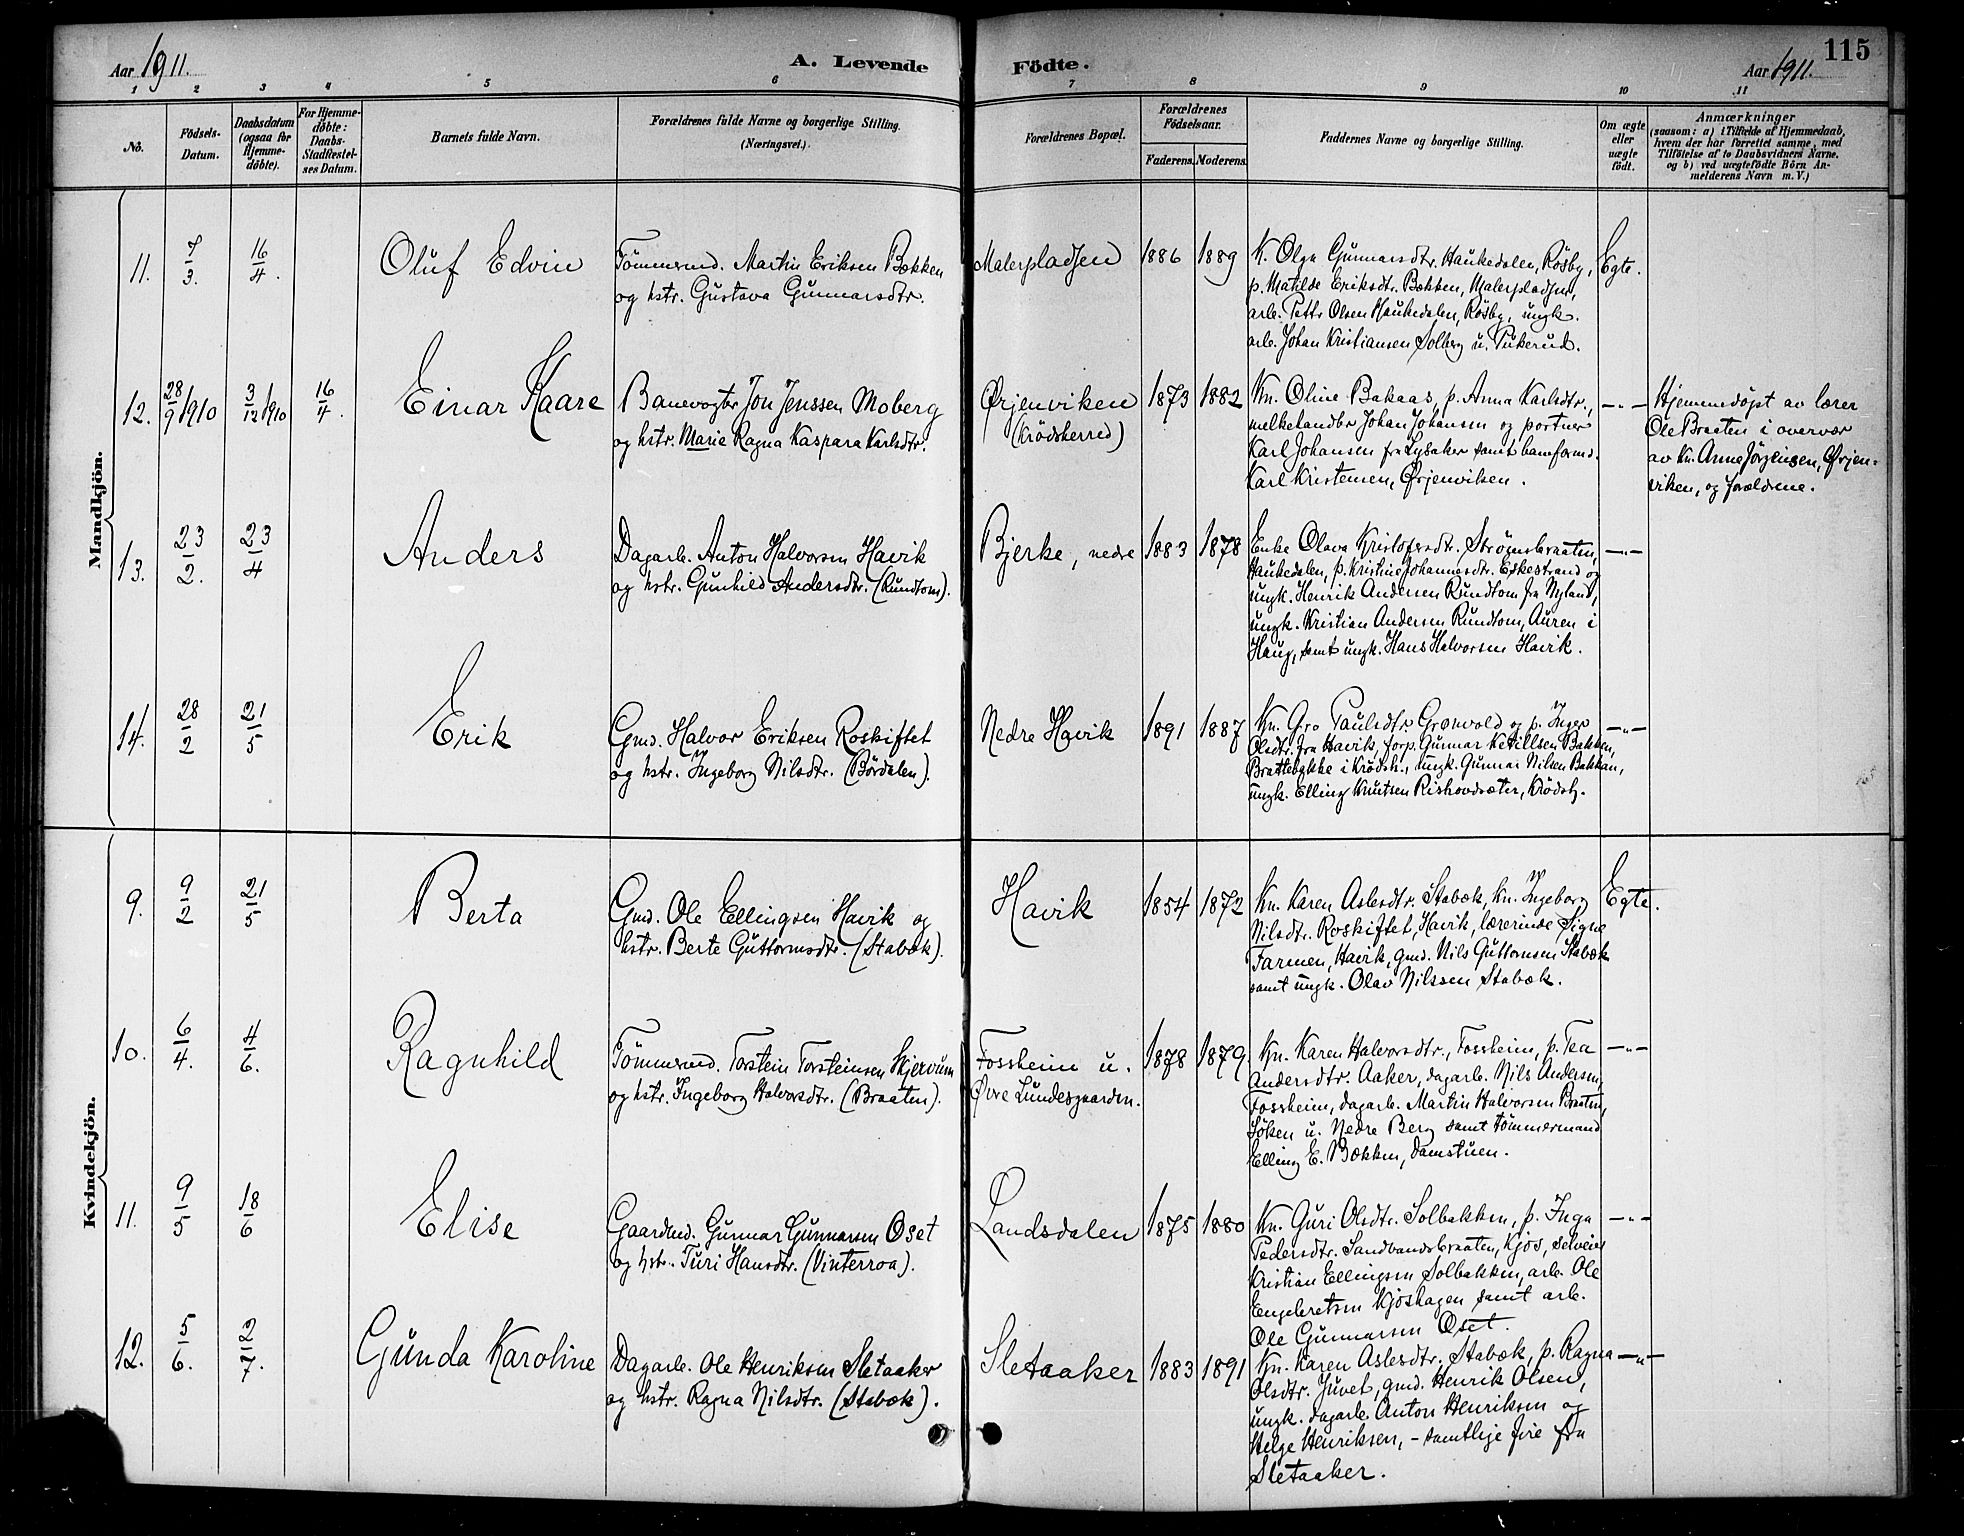 Aar 1911.
A. Levende Födte.
Aar 1911.
115
1 2 3 4 5 6 7 8 9 10 11
No.
Födsels-Datum.
Daabsdatum (ogsaa for Hjemme-döbte).
For Hjemme-döbte: Daabs-Stadfæstel-ses Datum.
Barnets fulde Navn.
Forældrenes fulde Navne og borgerlige Stilling. (Næringsvei.)
Forældrenes Bopæl.
Forældrenes Födselsaar.
Faderens. Moderens.
Faddernes Navne og borgerlige Stilling.
Om ægte eller uægte födt.
Anmærkninger
(saasom: a) i Tilfælde af Hjemmedaab,
hvem der har forrettet samme, med
Tilföielse af to Daabsvidners Navne,
og b) ved uægtefödte Börn An-
melderens Navn m. V.)
Mandkjön.
11. 7/3. 16/4. Oluf Edvin
Tömmermd. Martin Eriksen Bækken
og hstr. Gustava Gunnarsdtr.
Malerpladsen 1886 1889
K. Olga Gunnarsdtr. Haukedalen, Rösby,
p. Matilde Eriksdtr. Bækken, Malerpladsen,
arb. Petter Olsen Haukedalen, Rösby, ungk.
arb. Johan Kristiansen Solberg u. Pukerud.
Egte.
12. 28/9 1910 3/12 1910 16/4. Einar Kaare
Banevogter Jon Jenssen Moberg
og hstr. Marie Ragna Kaspara Karlsdtr.
Ørjenviken
(Krödsherred)
1873 1882
Kn. Oline Bakaas, p. Anna Karlsdtr.,
melkehandler Johan Johansen og portner
Karl Johansen fra Lysaker samt baneformd.
Karl Kristensen, Ørjenviken.
—„—
Hjemmedöpt av lærer
Ole Braaten i overvær
av Kn. Anne Jörgensen, Ørjen-
viken, og forældrene.
13. 23/2. 23/4 Anders
Dagarb. Anton Halvorsen Havik
og hstr. Gunhild Andersdtr. (Rundtom).
Bjerke, nedre 1883 1878
Enke Olava Kristofersdtr. Strömsbraaten,
Haukedalen, p. Kristine Johannesdtr. Eskestrand og
ungk. Henrik Andersen Rundtom fra Nyland,
ungk. Kristian Andersen Rundtom, Auren i
Haug, samt ungk. Hans Halvorsen Havik.
—„—
14. 28/2 21/5 Erik
Gmd. Halvor Eriksen Roskiftet
og hstr. Ingeborg Nilsdtr. (Bördalen).
Nedre Havik 1891 1887
Kn. Gro Paulsdtr. Grønvold og p. Inger
Olsdtr. fra Havik, forp. Gunnar Ketillsen Bakken,
Brattebakke i Krödsh., ungk. Gunnar Nilsen Bakkan,
ungk. Elling Knutsen Rishovdsæter, Krödsh.
—„—
Kvindekjön.
9. 9/2 21/5 Berta
Gmd. Ole Ellingsen Havik og
hstr. Berte Guttormsdtr. (Stabæk).
Havik 1854 1872
Kn. Karen Aslesdtr. Stabæk, Kn. Ingeborg
Nilsdtr. Roskiftet, Havik, lærerinde Signe
Farmen, Havik, gmd. Nils Guttormsen Stabæk
samt ungk. Olav Nilssen Stabæk.
Egte.
10. 6/4. 4/6. Ragnhild
Tömmermd. Torstein Torsteinsen Skjervum
og hstr. Ingeborg Halvorsdtr. (Braaten).
Fossheim u.
Övre Lundesgaarden.
1878 1879
Kn. Karen Halvorsdtr., Fossheim, p. Tea
Andersdtr. Aaker, dagarb. Nils Andersen,
Fossheim, dagarb. Martin Halvorsen Braaten,
Löken u. Nedre Berg samt tömmermand
Elling E. Bækken, Damstuen.
—„—
11. 9/5 18/6 Elise
Gaardmd. Gunnar Gunnarsen Oset
og hstr. Turi Hansdtr. (Vinterroa).
Landsdalen 1875 1880
Kn. Guri Olsdtr. Solbakken, p. Inga
Pedersdtr. Sandvandsbraaten, Kjös, selveier
Kristian Ellingsen Solbakken, arb. Ole
Engebretsen Kjöshagen samt arb.
Ole Gunnarsen Oset.
—„—
12. 5/6. 2/7. Gunda Karoline
Dagarb. Ole Henriksen Sletaaker
og hstr. Ragna Nilsdtr. (Stabæk).
Sletaaker 1883 1891
Kn. Karen Aslesdtr. Stabæk, p. Ragna
Olsdtr. Juvet, gmd. Henrik Olsen,
ungk. dagarb. Anton Henriksen og
Helge Henriksen, - samtlige fire fra
Sletaaker.
—„—